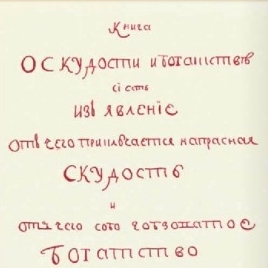 Книга
О СКУДОСТИ И БОГАТСТВѢ
есть
ИЗЪЯВЛЕНІЕ
отъ чего приключается напрасная
СКУДОСТЬ
и
отъ чего
БОГАТСТВО